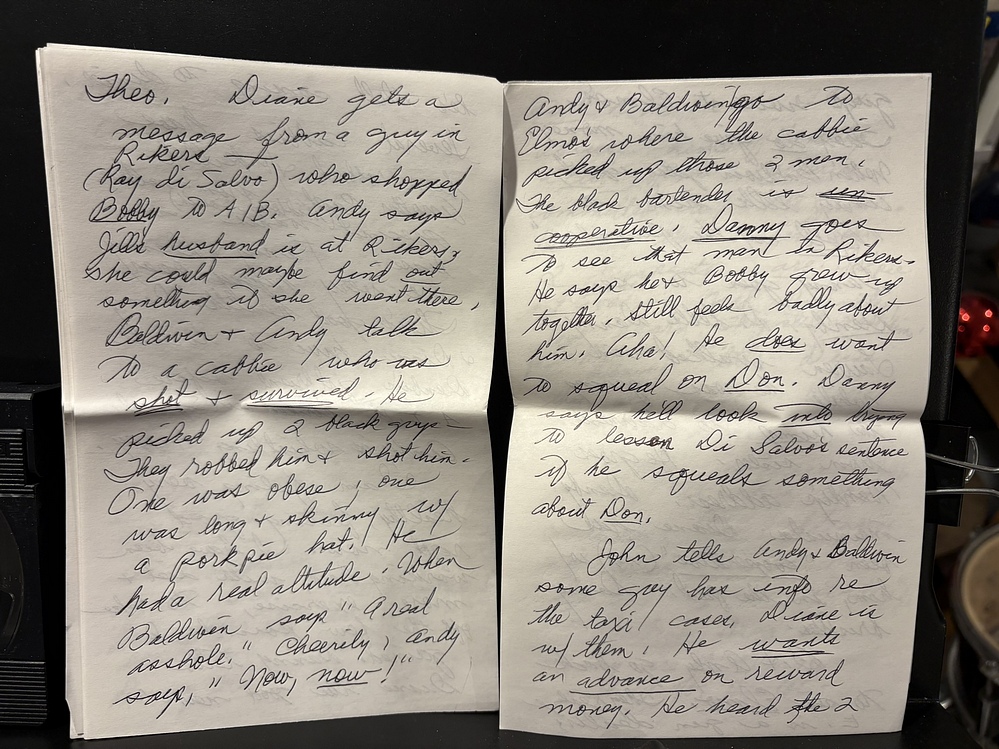 Theo. Diane gets a
message from a guy in
Rikers
(Ray di Salvo) who shopped
Bobby to A/B. Andy says
Jill's husband is at Rikers,
she could maybe find out
something if she went there.
Baldwin + Andy talk
to a cabbie who was
shot + survived. He
picked up 2 black guys –
They robbed him + shot him.
One was obese, one
was long + skinny w/
a pork pie hat. He
had a real attitude. When
Baldwin says "A real
asshole." Cheerily, Andy
says, "Now, now!"
Andy + Baldwin go to
Elmo's where the cabbie
picked up those 2 men.
The black bartender is un-
cooperative. Danny goes
to see that man in Rikers.
He says he + Bobby grew up
together, still feels badly about
him. Aha! He does want
to squeal on Don. Danny
says he'll look into trying
to lesson Di Salvo's sentence
if he squeals something
about Don.
John tells Andy + Baldwin
some guy has info re
the taxi cases. Diane is
w/ them. He wants
an advance on reward
money. He heard the 2